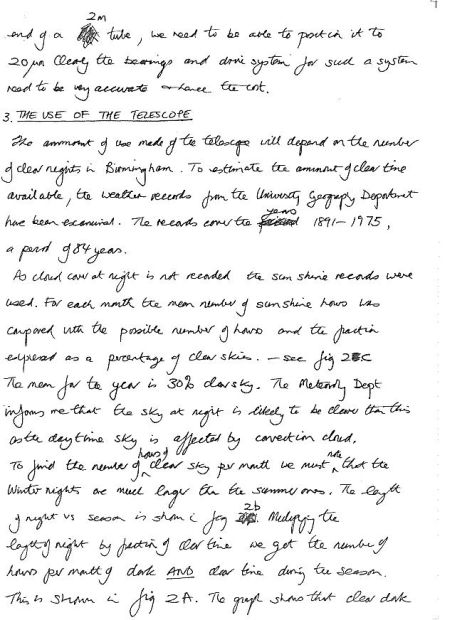 2m
end of a tube, we need to be able to position it to
20 µm Clearly the bearings and drive system for such a system
need to be very accurate & hence the cost.
3. THE USE OF THE TELESCOPE
The ammount of use made of the telescope will depend on the number
of clear nights in Birmingham. To estimate the amount of clear time
available, the weather records from the University Geography Department
have been examined. The records cover the years 1891-1975,
a period of 84 years.
As cloud cover at night is not recorded the sun shine records were
used. For each month the mean number of sunshine hours was
compared with the possible number of hours and the fraction
expressed as a percentage of clear skies. - see fig 2C
The mean for the year is 30% clear sky. The Dept
informs me that the sky at night is likely to be clearer than this
as the daytime sky is affected by convection cloud.
To find the number of hours of clear sky per month we must note that the
Winter nights are much longer than the summer ones. The length
of night vs season is shown in fig 2b. Multiplying the
length of night by fraction of clear time we get the number of
hours per month of dark AND clear time during the season.
This is shown in fig 2A. The graph shows that clear dark